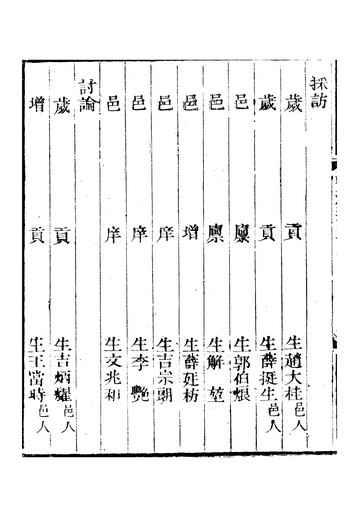 採訪
歲貢生趙大桂邑人
歲貢生薛挺生邑人
邑廩生郭伯煨
邑廩生解堃
邑增生薛廷枋
邑庠生吉宗朝
邑庠生李艷
邑庠生文兆和
討論
歲貢生吉炳耀邑人
增貢生王當時邑人